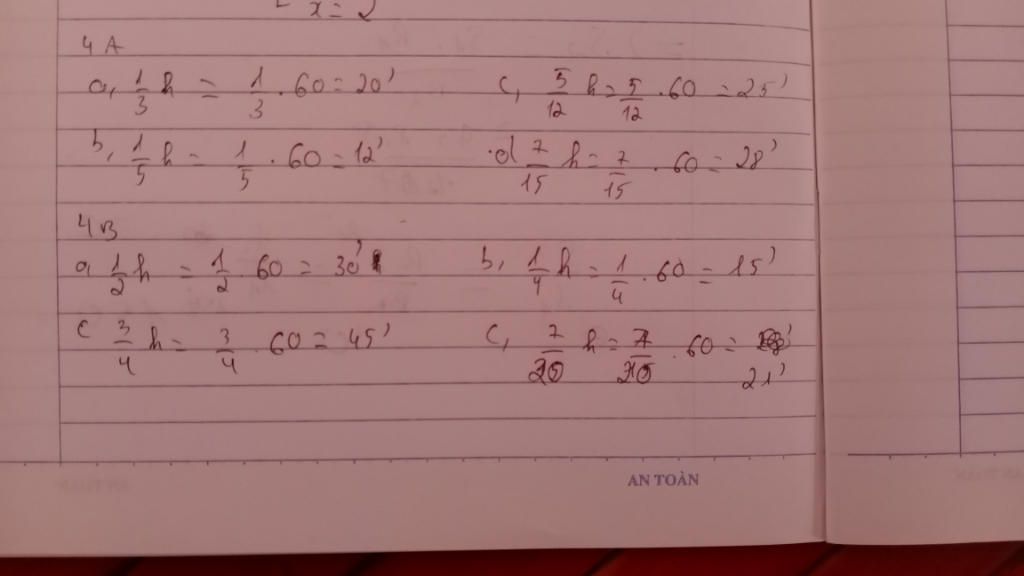 x = 2
4A
a, 1/3 h = 1/3 . 60 = 20' c, 5/12 h = 5/12 . 60 = 25'
b, 1/5 h = 1/5 . 60 = 12' d 7/15 h = 7/15 . 60 = 28'
4B
a 1/2 h = 1/2 . 60 = 30' b, 1/4 h = 1/4 . 60 = 15'
c 3/4 h = 3/4 . 60 = 45' c, 7/20 h = 7/20 . 60 =
21'
AN TOÀN